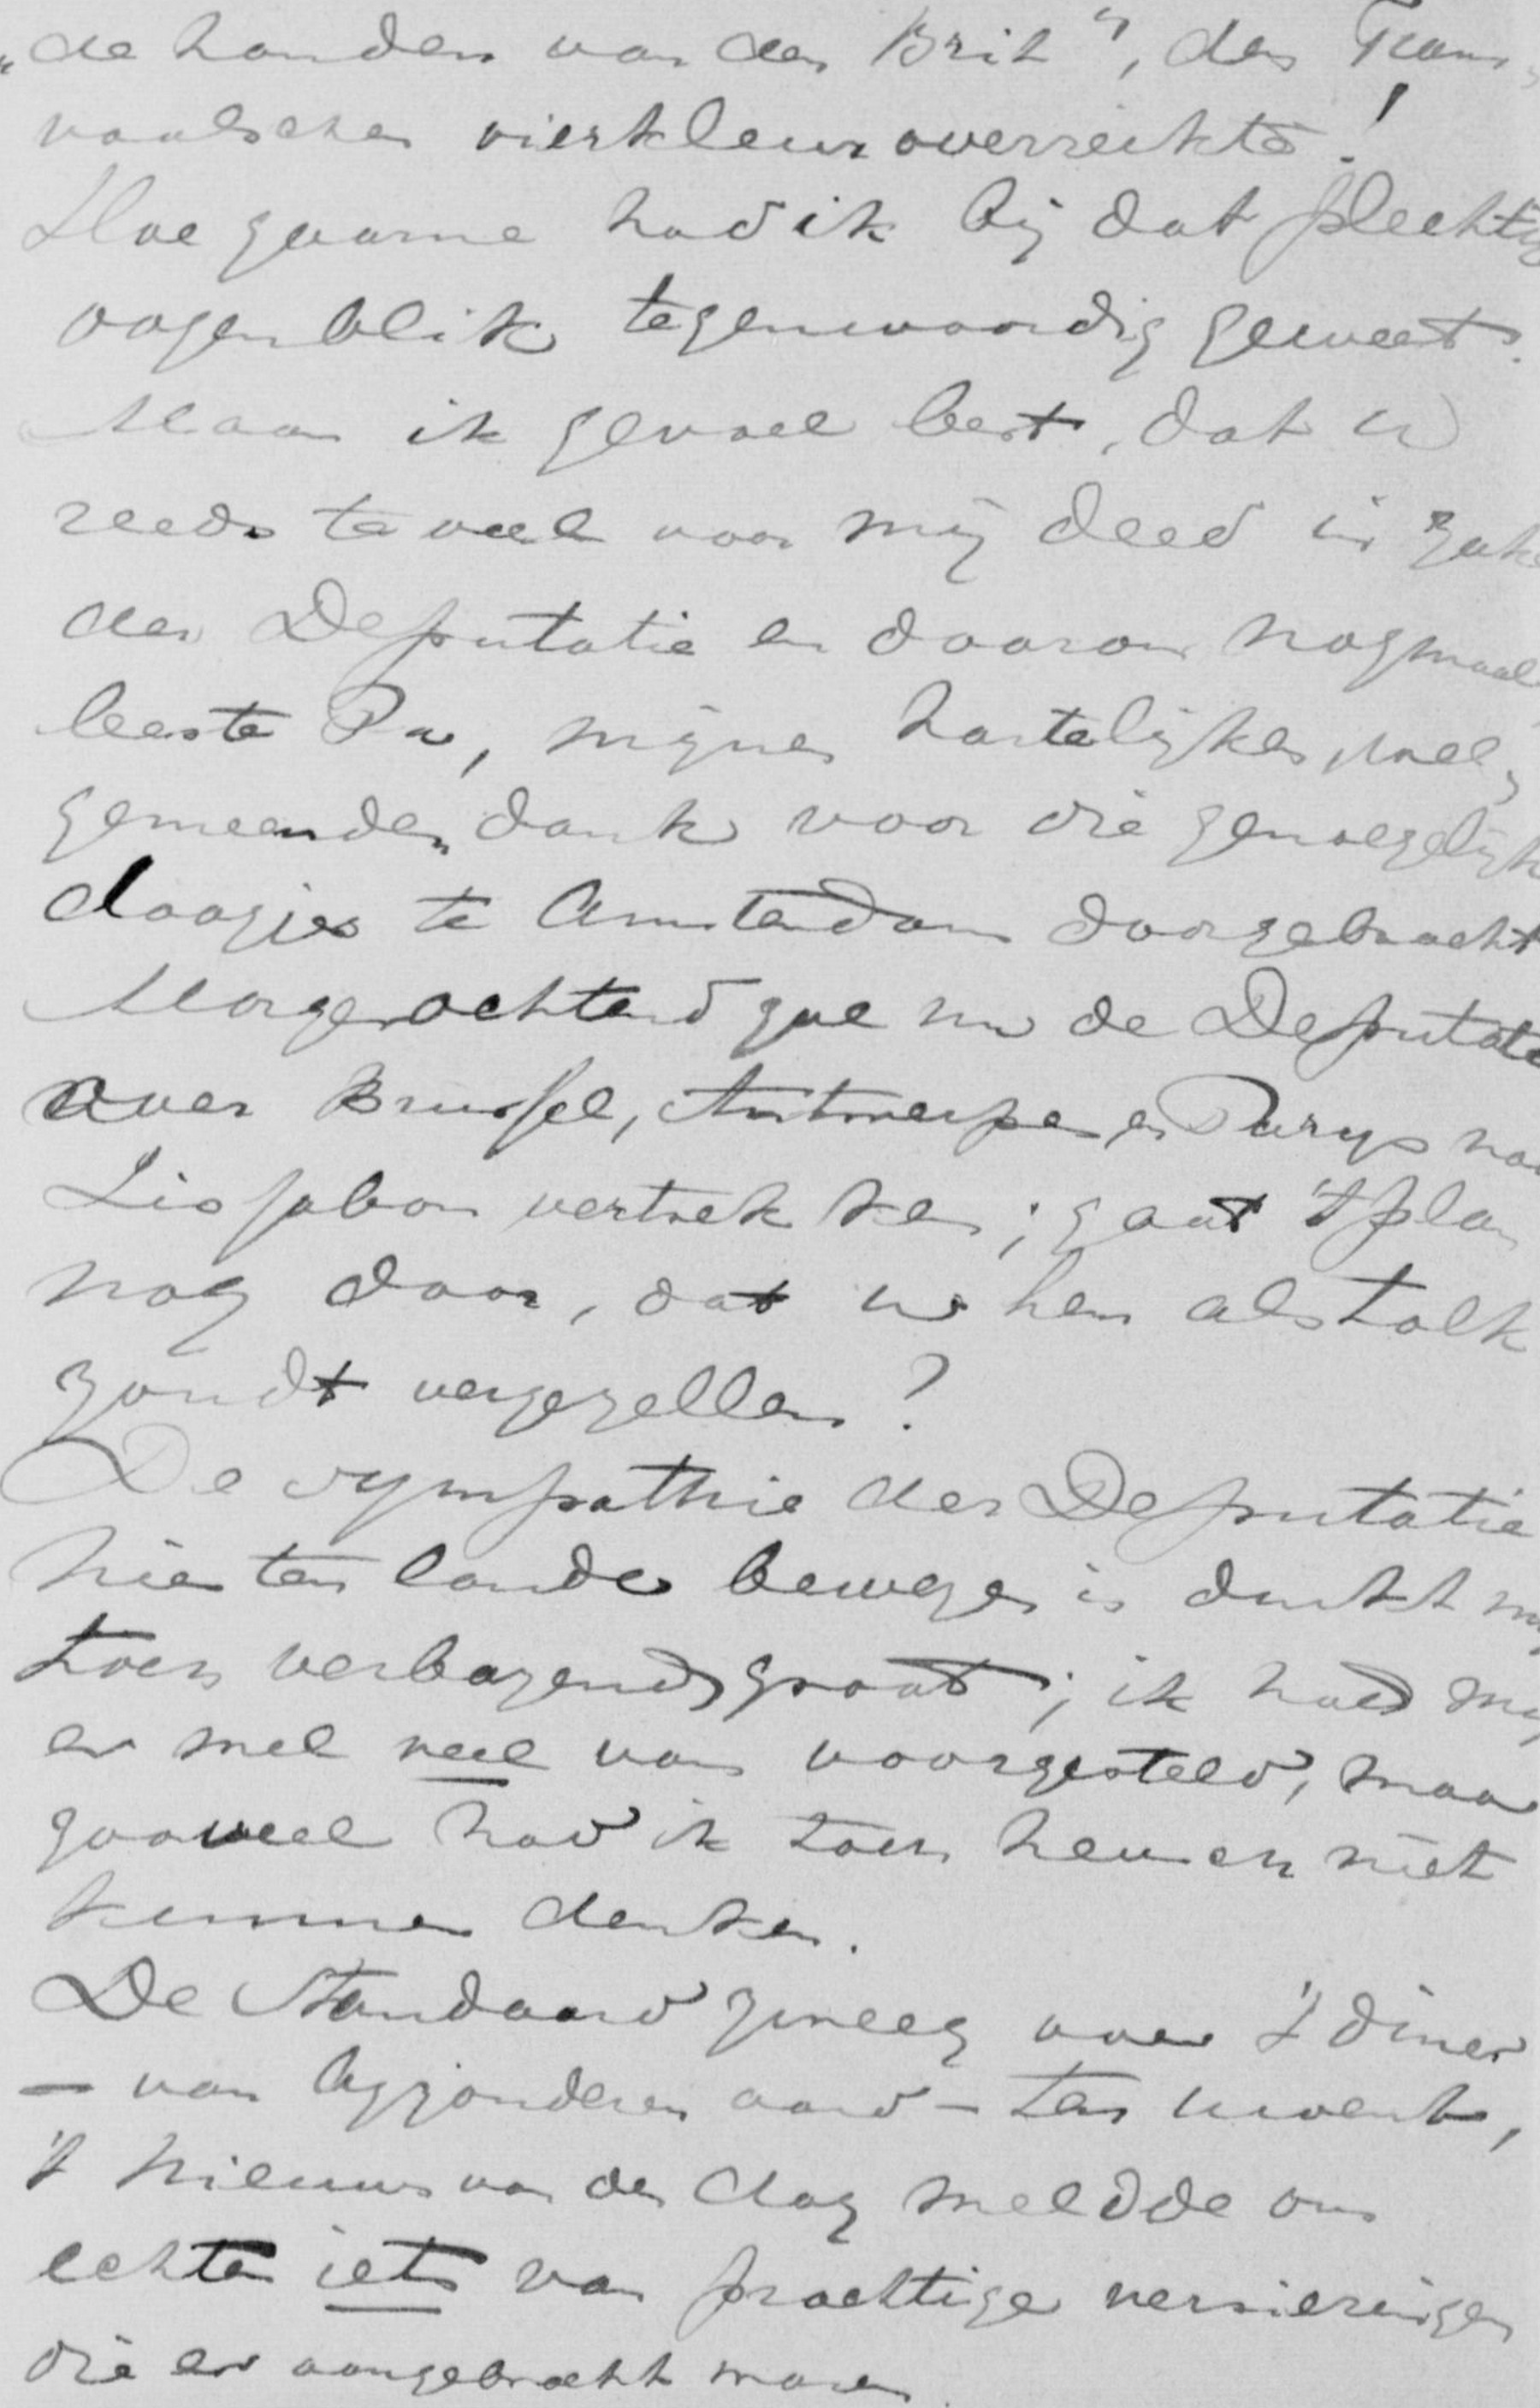 „de handen van den Brit", den Trans„
vaalschen vierkleur overreikte!
Hoe gaarne had ik bij dat plechtig
oogenblik tegenwoordig geweest.
Maar ik gevoel best, dat U
reeds te veel voor mij deed in zake
der Deputatie en daarom nogmaals
beste Pa, mijnen hartelijken, wel„
gemeenden dank voor die genoegelijke
daagjes te Amsterdam doorgebracht
Morgenochtend zal nu de Deputatie
over Brussel, Antwerpen en Parijs naar
Lissabon vertrekken; gaat 't plan
nog door, dat u hen als tolk
zoudt vergezellen?
De sympathie der Deputatie
hier ten lande bewezen is dunkt mij
toch verbazend groot; ik had mij
er wel veel van voorgesteld, maar
zooveel had ik toch heusch niet
kunnen denken.
De Standaard zweeg over 't diner
– van bijzonderen aard – ten uwent,
't Nieuws van den Dag meldde ons
echter iets van prachtige versieringen
die er aangebracht waren.